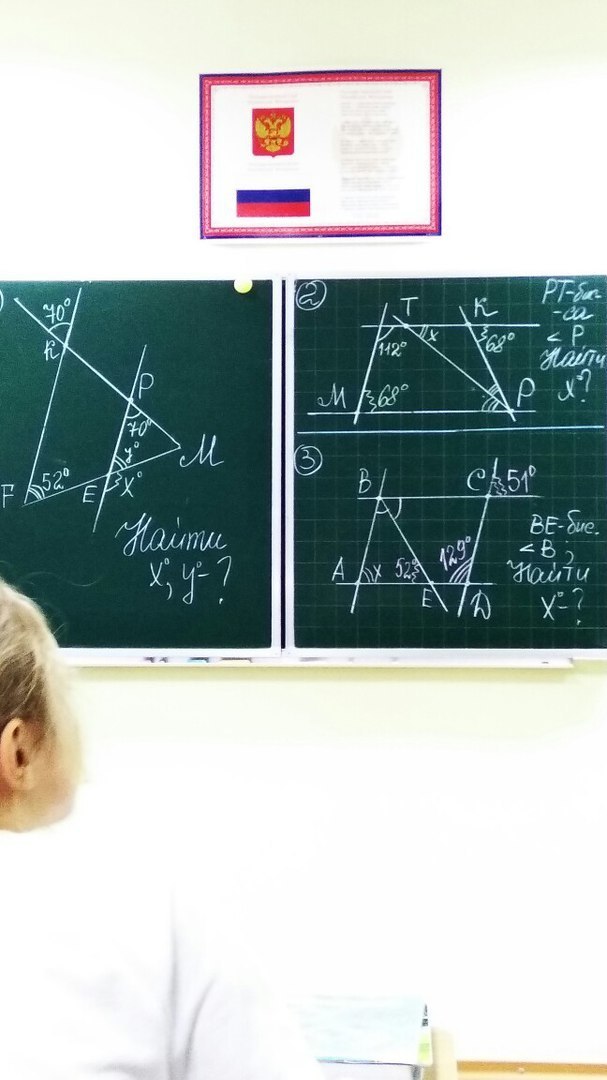 70°
K
P
70°
y°
M
F
52°
E
x°
Найти
x°, y° - ?
2
T
K
112°
x
68°
M
68°
P
PT-бис-
-са
< P
Найти
x°?
3
B
C
51°
129°
A
x
52°
E
D
BE-бис.
< B,
Найти
x° - ?